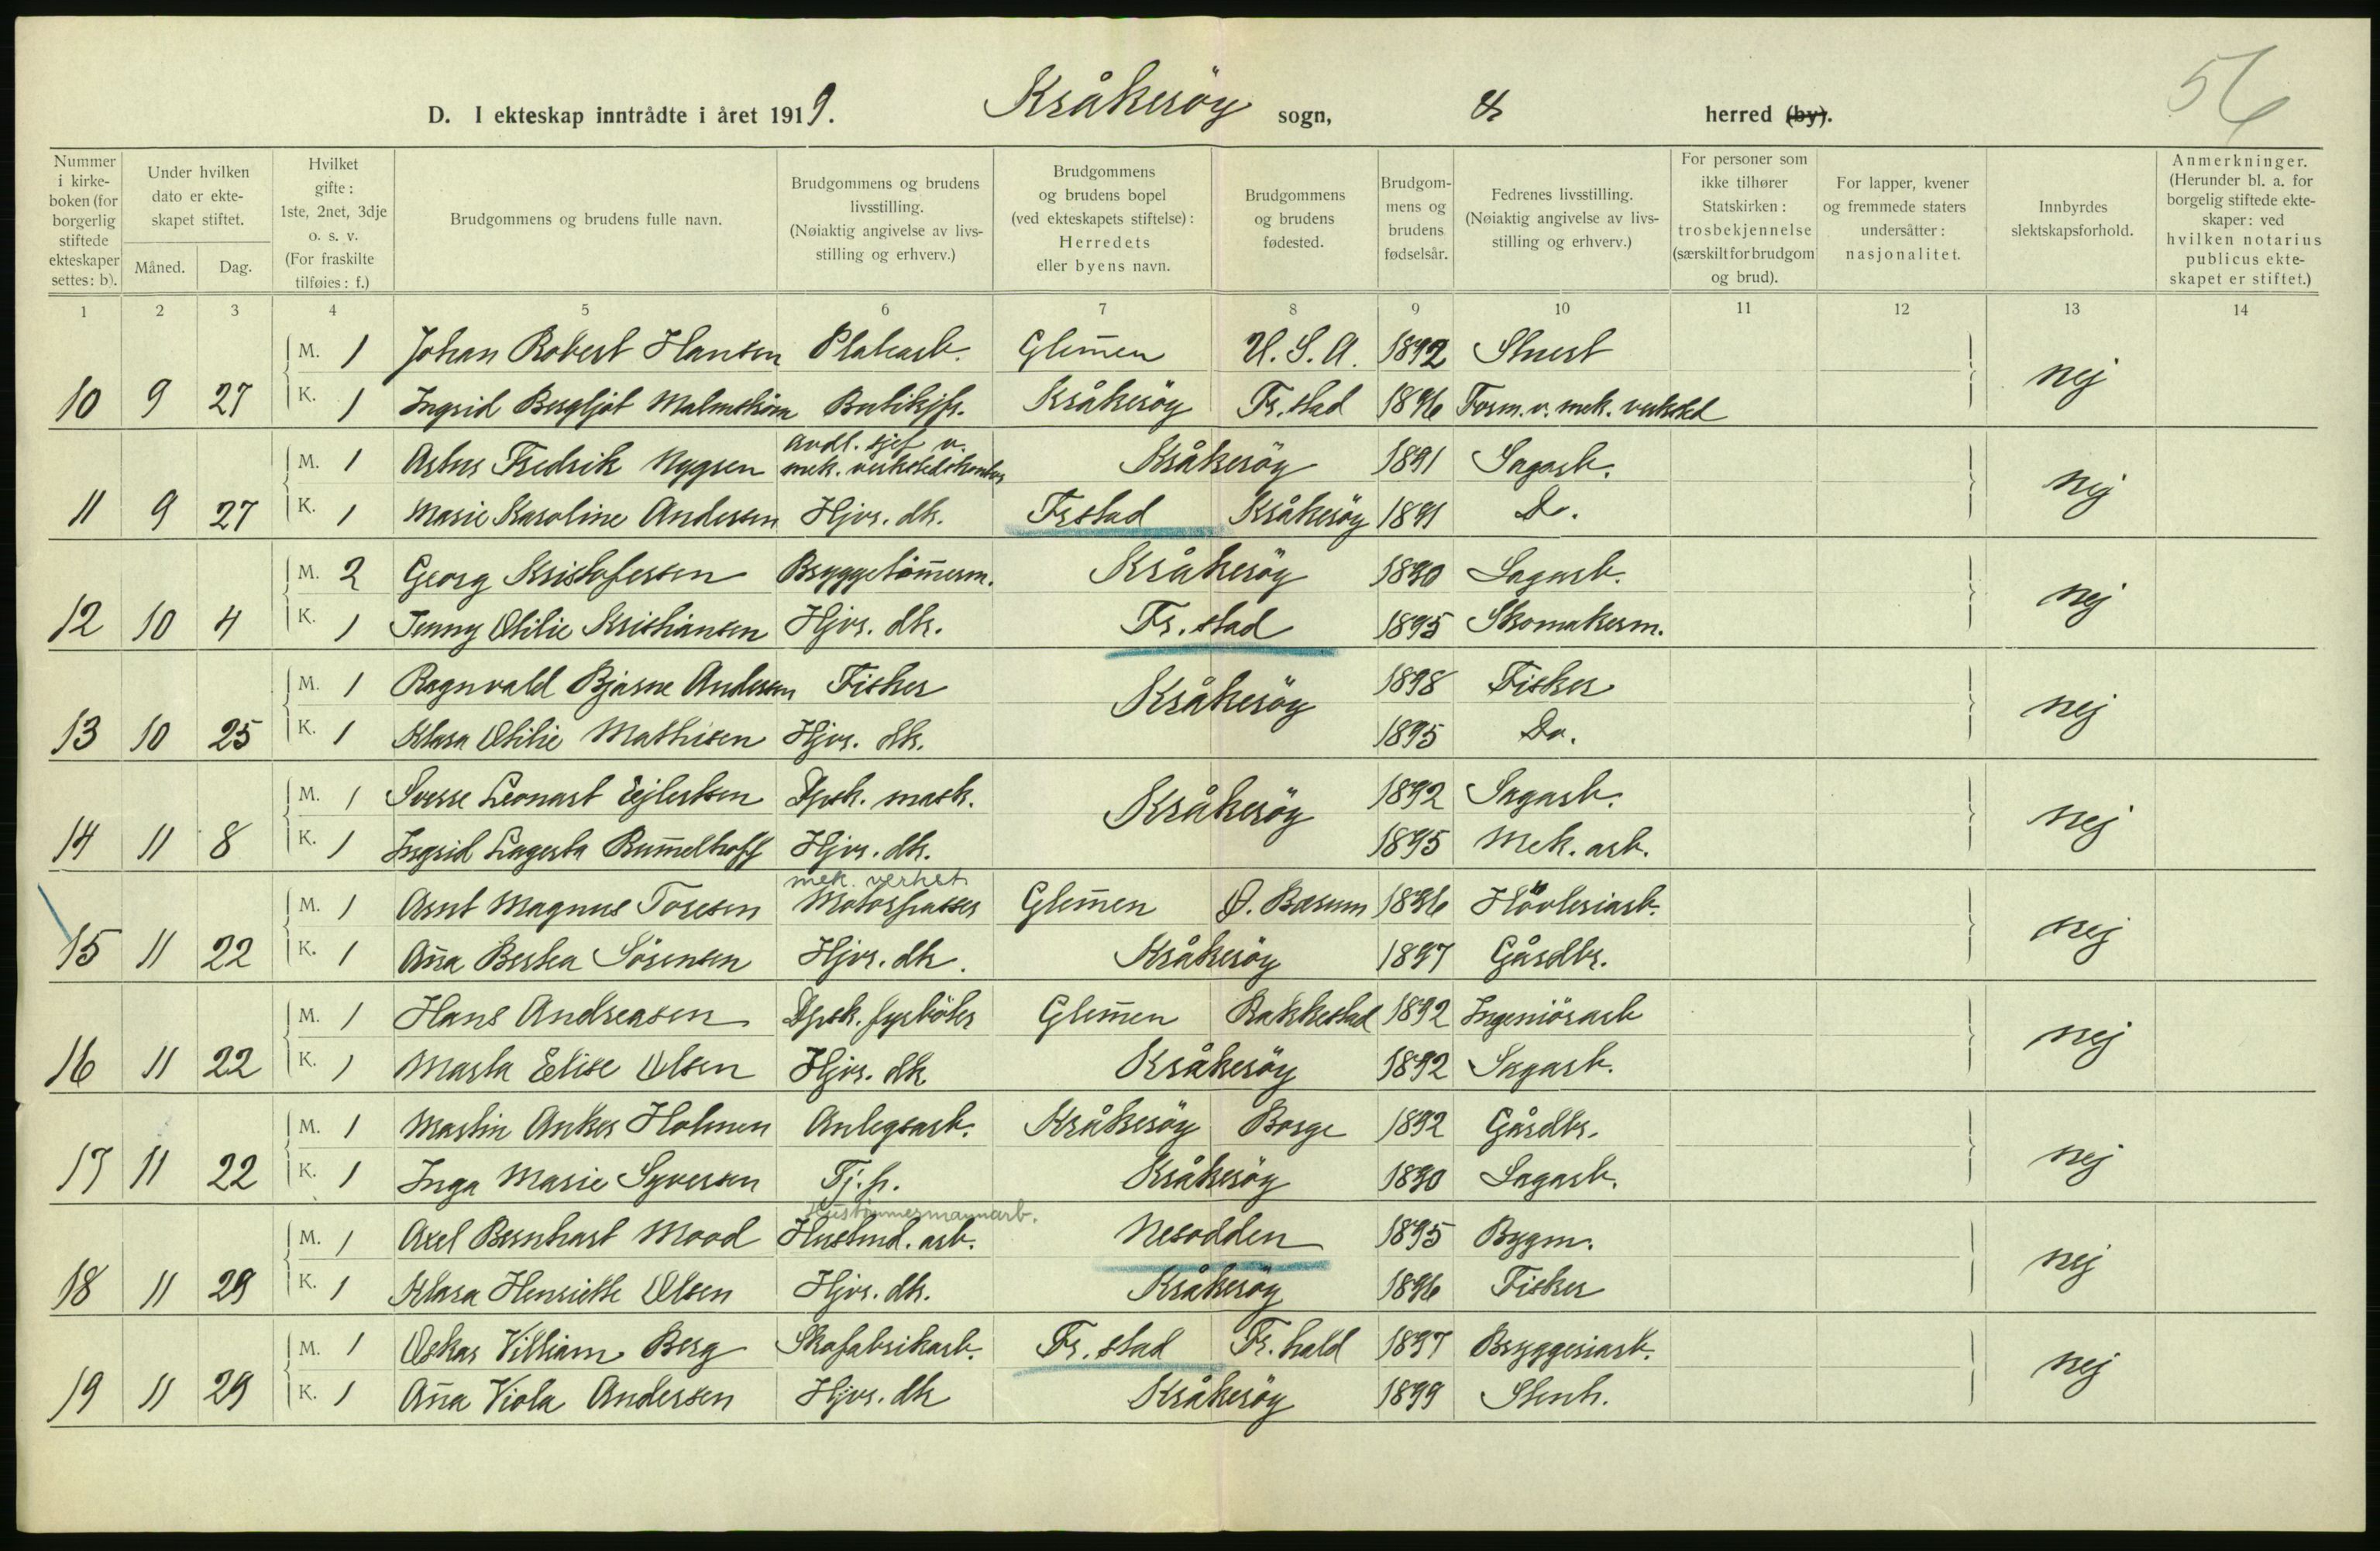 56
D. I ekteskap inntrådte i året 1919. Kråkeröy sogn, & herred (by).
Nummer i kirkeboken (for borgerlig stiftede ekteskaper settes: b).
Under hvilken dato er ekteskapet stiftet.
Måned. Dag.
Hvilket gifte: 1ste, 2net, 3dje o. s. v. (For fraskilte tilføies: f.)
Brudgommens og brudens fulle navn.
Brudgommens og brudens livsstilling. (Nøiaktig angivelse av livsstilling og erhverv.)
Brudgommens og brudens bopel (ved ekteskapets stiftelse): Herredets eller byens navn.
Brudgommens og brudens fødested.
Brudgommens og brudens fødselsår.
Fedrenes livsstilling. (Nøiaktig angivelse av livsstilling og erhverv.)
For personer som ikke tilhører Statskirken: trosbekjennelse (særskilt for brudgom og brud).
For lapper, kvener og fremmede staters undersåtter: nasjonalitet.
Innbyrdes slektskapsforhold.
Anmerkninger. (Herunder bl. a. for borgelig stiftede ekteskaper: ved hvilken notarius publicus ekteskapet er stiftet.)
1 2 3 4 5 6 7 8 9 10 11 12 13 14
M. 1 Johan Robert Hansen Platearb. Glem̄en U. S. A. 1892 Stuert
10 9 27 K. 1 Ingrid Bergljot Malmström Butikjfr. Kråkeröy Fr.stad 1896 Form. v. mek. verksted nej
avdl. sjef v.
M. 1 Fredrik Nygsen mek. verkstedskontor Kråkeröy 1891 Sagarb.
11 9 27 K. 1 Marie Karoline Andersen Hjvr. dtr. Frstad Kråkeröy 1891 Do. nej
M. 2 Georg Kristofersen Bryggetöm̄erm. Kråkeröy 1890 Sagarb.
12 10 4 K. 1 Jenny Otilie Kristiansen Hjvr. dtr. Fr.stad 1895 Skomakerm. nej
M. 1 Ragnvald Bjarne Andersen Fisker Kråkeröy 1898 Fisker
13 10 25 K. 1 Klara Otilie Mathisen Hjvr. dtr. 1895 Do. nej
M. 1 Sverre Leonart Ejlertsen Dpsk. mask. Kråkeröy 1892 Sagarb.
14 11 8 K. 1 Ingrid Lagerta Rum̄elhoff Hjvr. dtr. 1895 Mek. arb. nej
mek. verkst
M. 1 Arnt Magnus Toresen Motorpasser Glem̄en Ø. Bærum 1896 Hövleriarb.
15 11 22 K. 1 An̄a Bertea Sörensen Hjvr. dtr. Kråkeröy 1897 Gårdbr. nej
M. 1 Hans Andreasen Dpsk. fyrböter Glem̄en Rakkestad 1892 Ingeniörarb
16 11 22 K. 1 Marta Elise Olsen Hjvr. dtr Kråkeröy 1892 Sagarb. nej
M. 1 Martin Anker Holmen Anlegsarb. Kråkeröy Borge 1892 Gårdbr.
17 11 22 K. 1 Inga Marie Syversen Tj.p. Kråkeröy 1890 Sagarb. nej
Hustømmermannarb.
M. 1 Axel Bernhart Mood Hustmd. arb. Nesodden 1895 Bygm.
18 11 29 K. 1 Klara Henriette Olsen Hjvr. dtr. Kråkeröy 1896 Fisker nej
M. 1 Oskar Villiam Berg Skofabrikarb. Fr.stad Fr.hald 1897 Bryggeriarb.
19 11 29 K. 1 An̄a Viola Andersen Hjvr. dtr Kråkeröy 1899 Stenh. nej